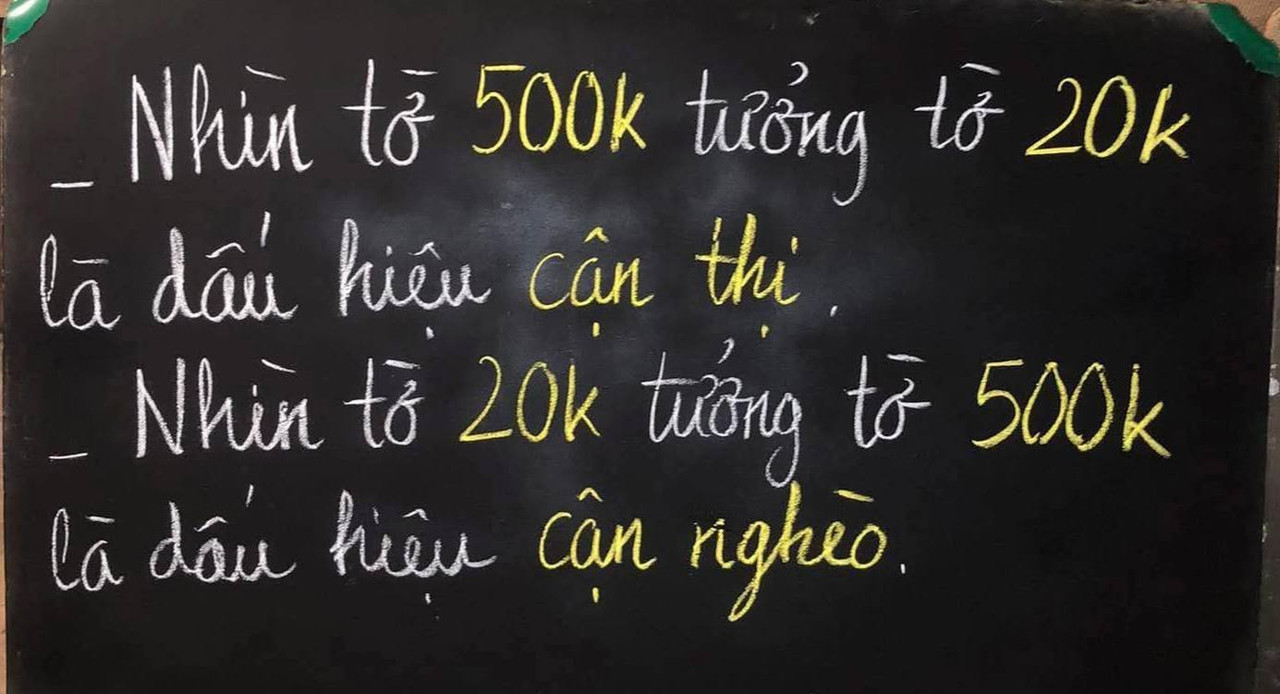 _ Nhìn tờ 500k tưởng tờ 20k
là dấu hiệu cận thị.
_ Nhìn tờ 20k tưởng tờ 500k
là dấu hiệu cận nghèo.